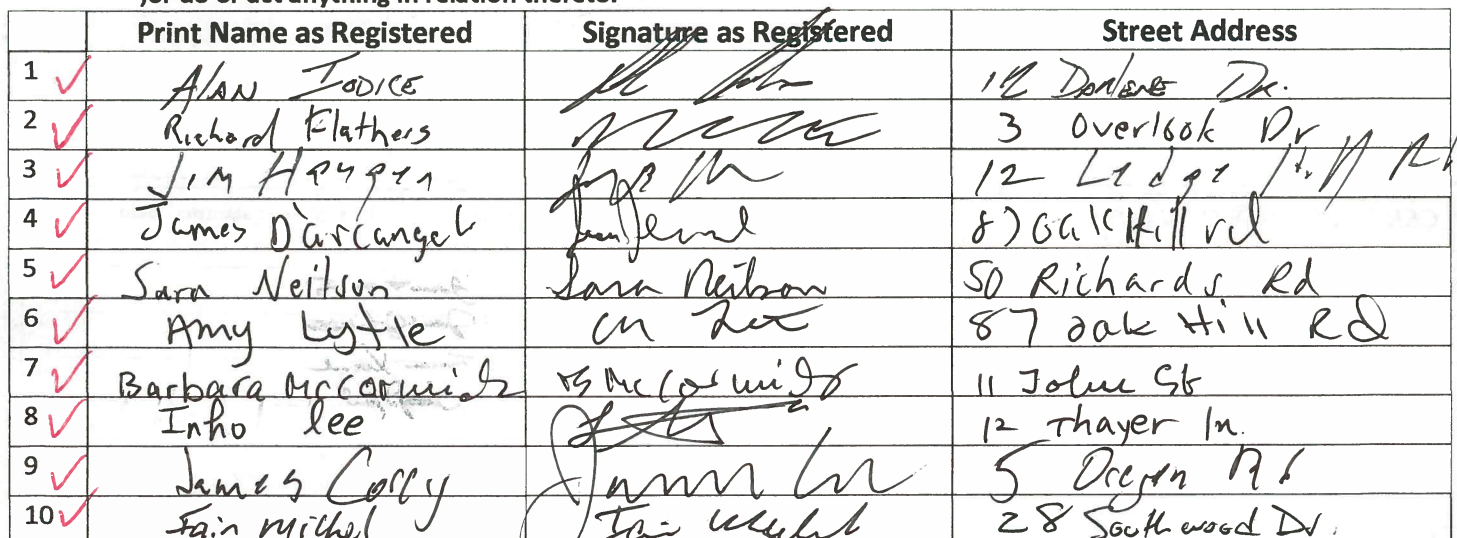 /or do or act anything in relation thereto.
Print Name as Registered Signature as Registered Street Address
1 Alan Iodice 12 Darlene Dr.
2 Richard Flathers 3 Overlook Dr
3 Jim 12 Ledge Hill Rd
4 James D'arcangelo 87 Oak Hill rd
5 Sara Neilson Sara Neilson 50 Richards Rd
6 Amy Lytle 87 oak Hill Rd
7 Barbara McCormick B McCormick 11 John St
8 Inho Lee 12 Thayer ln.
9 James Corry 5 Oregon Rd
10 Iain Michel 28 Southwood Dr.